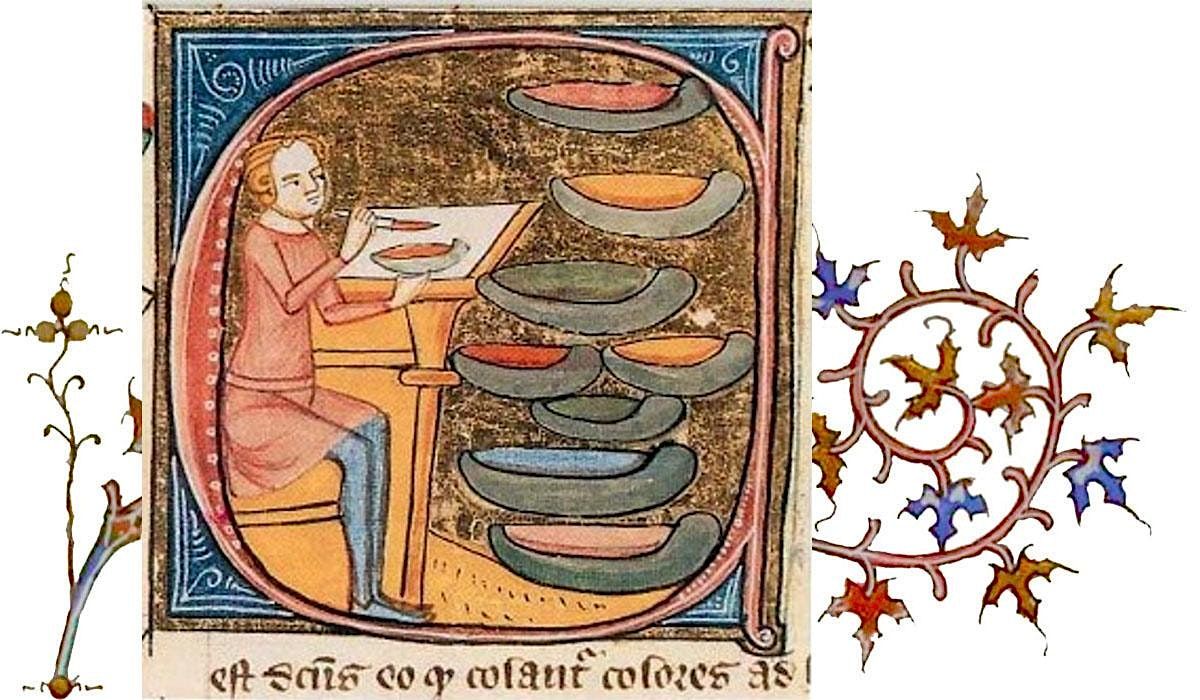 est dc̄us eo ꝙ colant᷑ colores ad